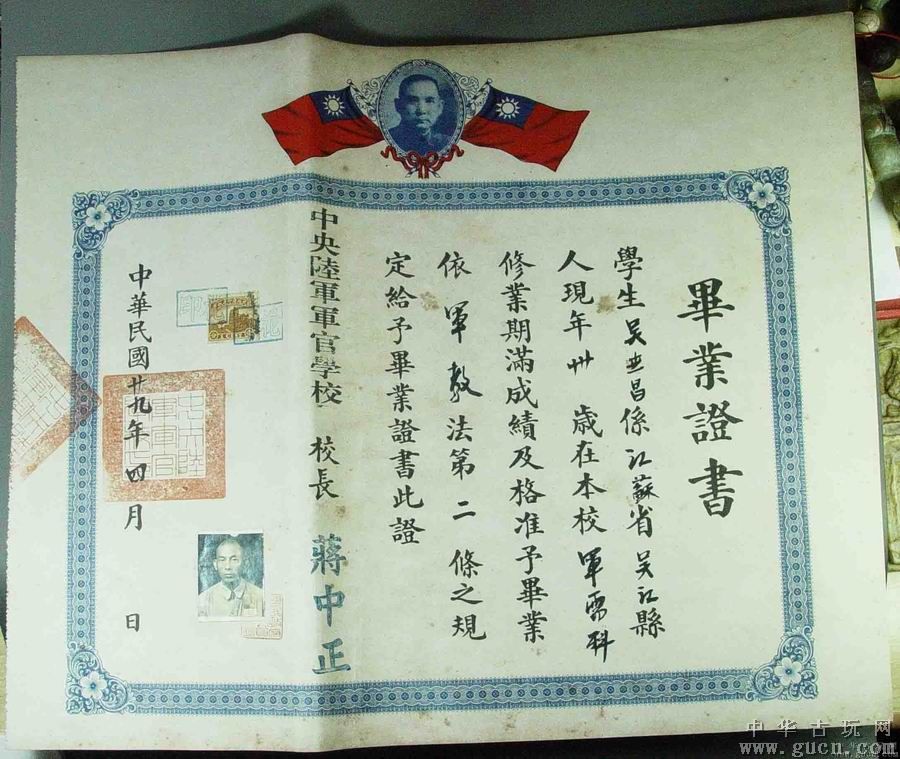 畢業證書
學生吴世昌係江蘇省吴江縣
人現年卅歲在本校軍需科
修業期滿成績及格准予畢業
依軍教法第二條之規
定給予畢業證書此證
中央陸軍軍官學校 校長 蔣中正
中華民國廿九年四月 日
中华古玩网
www.gucn.com